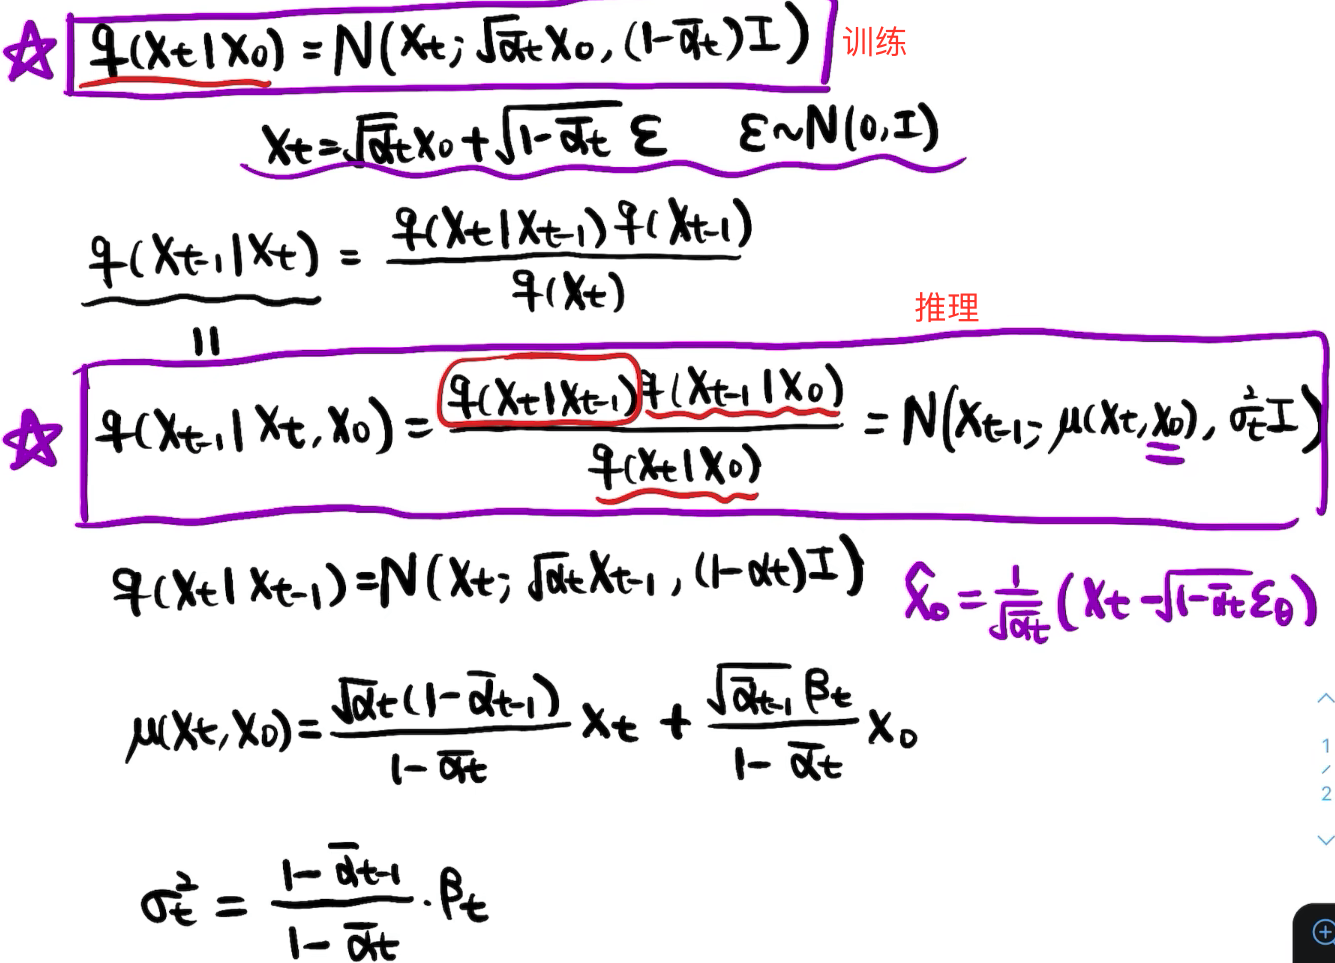 ☆ q(Xt|X0) = N(Xt; √ᾱt X0, (1-ᾱt)I) 训练
Xt = √ᾱt X0 + √(1-ᾱt) ε   ε~N(0,I)
q(Xt-1|Xt) = q(Xt|Xt-1) q(Xt-1) / q(Xt)
||
推理
☆ q(Xt-1|Xt, X0) = q(Xt|Xt-1) q(Xt-1|X0) / q(Xt|X0) = N(Xt-1; μ(Xt, X0), σt² I)
q(Xt|Xt-1) = N(Xt; √αt Xt-1, (1-αt)I)   X̂0 = 1/√ᾱt (Xt - √(1-ᾱt) εθ)
μ(Xt, X0) = √αt (1-ᾱt-1) / (1-ᾱt) Xt + √ᾱt-1 βt / (1-ᾱt) X0
σt² = (1-ᾱt-1) / (1-ᾱt) · βt
1
/
2